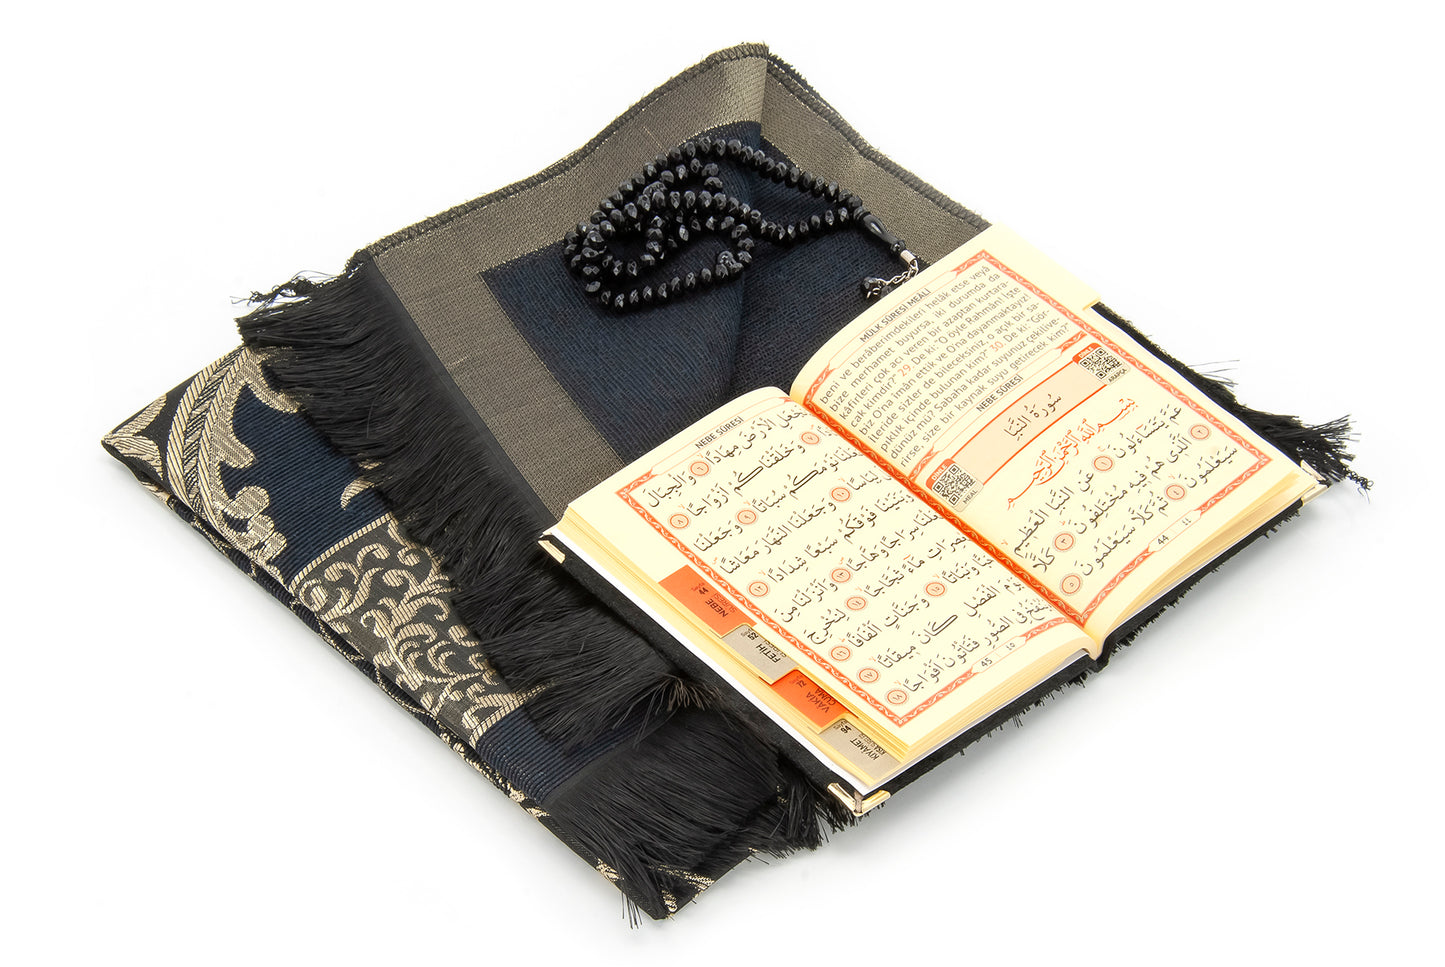 MÜLK SÛRESİ MEALİ
beni ve berâberimdekileri helâk etse veyâ
bize merhamet buyursa, iki durumda da
kâfirleri çok acı veren bir azaptan kurtara-
cak kimdir?" 29. De ki: "O öyle Rahmân! İşte
biz O'na îmân ettik ve O'na dayanmaktayız!
İleride sizler de bileceksiniz, o açık bir sa-
pıklık içinde bulunan kim?" 30. De ki: "Gör-
dünüz mü? Sabaha kadar suyunuz çekilive-
rirse, size bir kaynak suyu getirecek kim?"
NEBE SÛRESİ
MEAL
ARAPÇA
سُورَةُ النَّبَأِ
بِسْمِ اللّٰهِ الرَّحْمٰنِ الرَّحِيمِ
عَمَّ يَتَسَاءَلُونَ ١ عَنِ النَّبَأِ الْعَظِيمِ
٢ الَّذِي هُمْ فِيهِ مُخْتَلِفُونَ ٣ كَلَّا
سَيَعْلَمُونَ ٤ ثُمَّ كَلَّا سَيَعْلَمُونَ ٥
44 ٤٤
NEBE SÛRESİ
نَجْعَلِ الْاَرْضَ مِهَادًا ٦ وَالْجِبَالَ
٧ وَخَلَقْنَاكُمْ اَزْوَاجًا ٨
نَوْمَكُمْ سُبَاتًا ٩ وَجَعَلْنَا
١٠ وَجَعَلْنَا النَّهَارَ مَعَاشًا
وَبَنَيْنَا فَوْقَكُمْ سَبْعًا شِدَادًا ١٢
سِرَاجًا وَهَّاجًا ١٣ وَاَنْزَلْنَا مِنَ
مَاءً ثَجَّاجًا ١٤ لِنُخْرِجَ
وَنَبَاتًا ١٥ وَجَنَّاتٍ اَلْفَافًا ١٦
الْفَصْلِ كَانَ مِيقَاتًا ١٧
الصُّورِ فَتَأْتُونَ اَفْوَاجًا ١٨
45 ٤٥
NEBE
SÛRESİ
FETİH
VÂKIA
CUMA
KIYÂMET